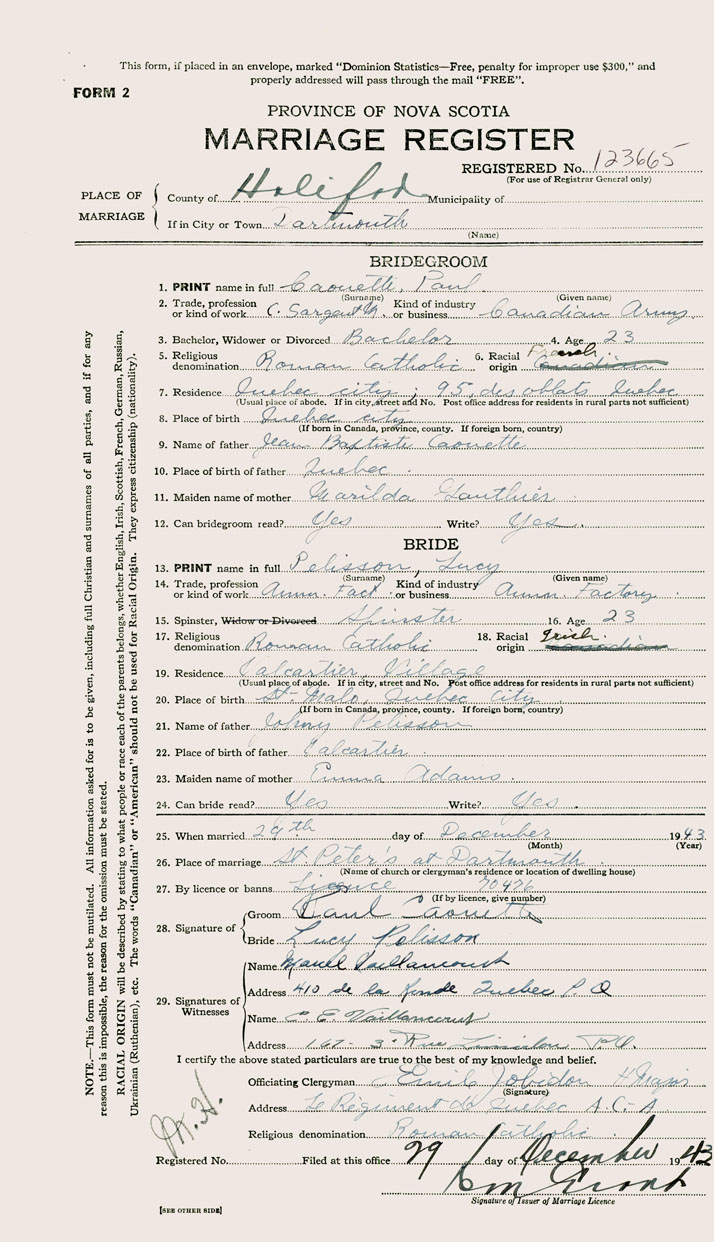 This form, if placed in an envelope, marked “Dominion Statistics—Free, penalty for improper use $300,” and
properly addressed will pass through the mail “FREE”.
FORM 2
PROVINCE OF NOVA SCOTIA
MARRIAGE REGISTER
REGISTERED No. 123665
(For use of Registrar General only)
PLACE OF MARRIAGE
County of Halifax Municipality of
If in City or Town Dartmouth
(Name)
BRIDEGROOM
1. PRINT name in full Caouette, Paul
(Surname) (Given name)
2. Trade, profession or kind of work C. Sargent Kind of industry or business Canadian Army
3. Bachelor, Widower or Divorced Bachelor 4. Age 23
5. Religious denomination Roman Catholic 6. Racial origin French Canadian
7. Residence Quebec city; 95, des oblats Quebec
(Usual place of abode. If in city, street and No. Post office address for residents in rural parts not sufficient)
8. Place of birth Quebec city
(If born in Canada, province, county. If foreign born, country)
9. Name of father Jean Baptiste Caouette
10. Place of birth of father Quebec
11. Maiden name of mother Marilda Gauthier
12. Can bridegroom read? Yes Write? Yes
BRIDE
13. PRINT name in full Pelisson, Lucy
(Surname) (Given name)
14. Trade, profession or kind of work Amm. Fact. Kind of industry or business Amm. Factory
15. Spinster, Widow or Divorced Spinster 16. Age 23
17. Religious denomination Roman Catholic 18. Racial origin Irish. Canadian
19. Residence Valcartier, Village
(Usual place of abode. If in city, street and No. Post office address for residents in rural parts not sufficient)
20. Place of birth St-Malo, Quebec City
(If born in Canada, province, county. If foreign born, country)
21. Name of father Johny Pelisson
22. Place of birth of father Valcartier
23. Maiden name of mother Emma Adams.
24. Can bride read? Yes Write? Yes.
25. When married 29th day of December 1943
(Month) (Year)
26. Place of marriage St. Peter's at Dartmouth
(Name of church or clergyman's residence or location of dwelling house)
27. By licence or banns Licence 70476
(If by licence, give number)
28. Signature of
Groom Paul Caouette
Bride Lucy Pelisson
29. Signatures of Witnesses
Name Vaillancourt
Address 410 de la Quebec P.Q
Name C. E. Vaillancourt
Address 167- 3e Rue P.Q.
I certify the above stated particulars are true to the best of my knowledge and belief.
Officiating Clergyman Emile Jobidon H/Major
(Signature)
Address Le Régiment de Quebec A.C.A.
Religious denomination Roman Catholic
M.H.
Registered No. Filed at this office 29 day of December 1943
Grant
Signature of Issuer of Marriage Licence
[SEE OTHER SIDE]
NOTE.—This form must not be mutilated. All information asked for is to be given, including full Christian and surnames of all parties, and if for any
reason this is impossible, the reason for the omission must be stated.
RACIAL ORIGIN will be described by stating to what people or race each of the parents belongs, whether English, Irish, Scottish, French, German, Russian,
Ukrainian (Ruthenian), etc. The words “Canadian” or “American” should not be used for Racial Origin. They express citizenship (nationality).